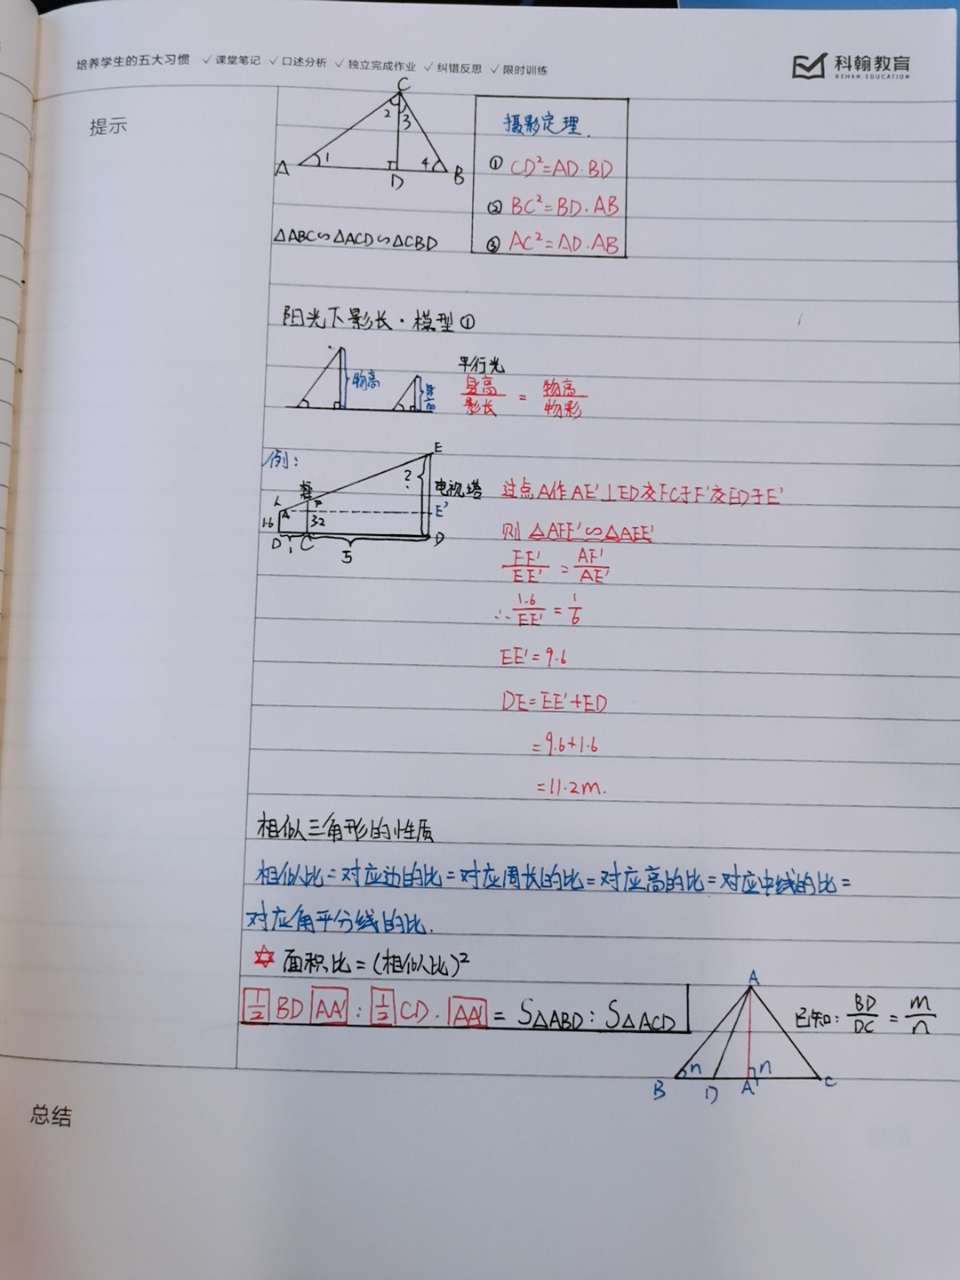 培养学生的五大习惯 ✓课堂笔记 ✓口述分析 ✓独立完成作业 ✓纠错反思 ✓限时训练
科翰教育
KEHAN EDUCATION
提示
C
2 3
A 1 D 4 B
△ABC∽△ACD∽△CBD
摄影定理.
① CD²=AD·BD
② BC²=BD·AB
③ AC²=AD·AB
阳光下影长·模型①
物高
平行光
身高/影长 = 物高/物影
例:
E
? 电视塔
A F E'
1.6 3.2
D 1 C D
5
过点A作AE'⊥ED交FC于F'交ED于E'
则△AFF'∽△AEE'
FF'/EE' = AF'/AE'
∴ 1.6/EE' = 1/6
EE'=9.6
DE=EE'+ED
=9.6+1.6
=11.2m.
相似三角形的性质
相似比=对应边的比=对应周长的比=对应高的比=对应中线的比=
对应角平分线的比.
面积比=(相似比)²
1/2 BD AA' : 1/2 CD · AA' = S△ABD : S△ACD
A
已知: BD/DC = m/n
n n
B D A' C
总结